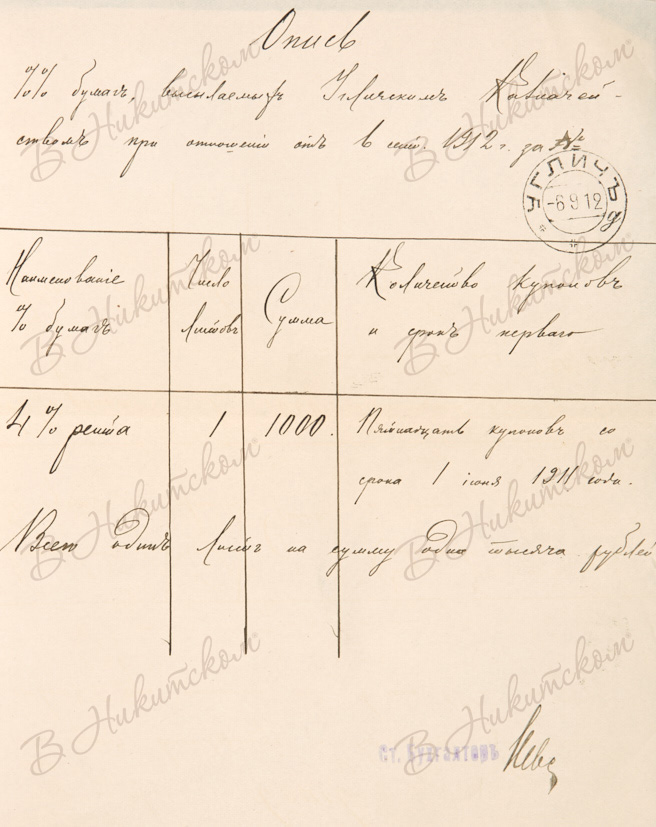 Опись
%% бумагъ, высылаемыхъ Угличскимъ Казначей-
ствомъ при отношеніи отъ 6 сент. 1912 г. за №
УГЛИЧЪ
-6 9 12
Наименованіе
% бумагъ
Число
листовъ
Сумма
Количество купоновъ
и срокъ перваго
4% рента
1
1000.
Пятнадцать купоновъ со
срока 1 іюня 1911 года.
Всего одинъ листъ на сумму одна тысяча рублей
Ст. Бухгалтеръ
В Никитском
В Никитском
В Никитском
В Никитском
В Никитском
В Никитском
В Никитском
В Никитском